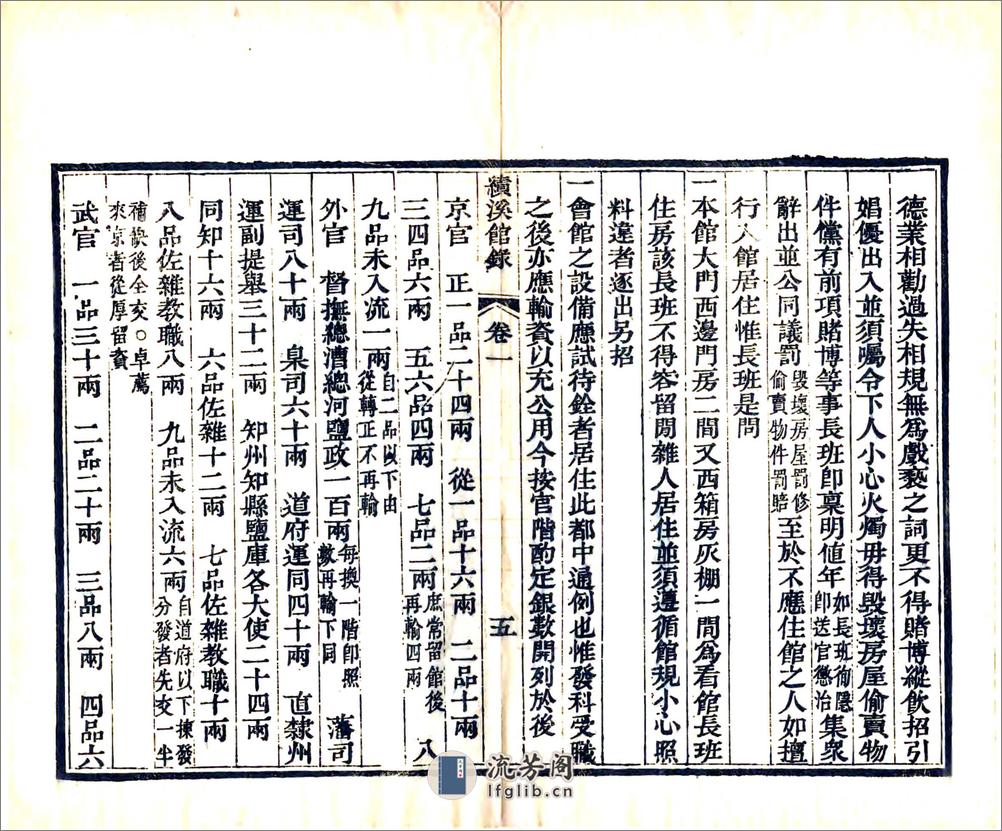 德業相勸過失相規無爲戲褻之詞更不得賭博縱飲招引
娼優出入並須囑令下人小心火燭毋得毀壞房屋偷賣物
件儻有前項賭博等事長班卽稟明値年如長班徇隱卽送官懲治集衆
辭出並公同議罰毀壞房屋罰修偷賣物件罰賠至於不應住館之人如擅
行入館居住惟長班是問
一本館大門西邊門房二間又西箱房灰棚一間爲看館長班
住房該長班不得容留閒雜人居住並須遵循館規小心照
料違者逐出另招
一會館之設備應試待銓者居住此都中通例也惟發科受職
之後亦應輸資以充公用今按官階酌定銀數開列於後
京官 正一品二十四兩 從一品十六兩 二品十兩
三四品六兩 五六品四兩 七品二兩庶常留館後再輸四兩 八
九品未入流一兩自二品以下由從轉正不再輸
績溪館錄 卷一 五
外官 督撫總漕總河鹽政一百兩每換一階卽照數再輸下同 藩司
運司八十兩 臬司六十兩 道府運同四十兩 直隸州
運副提舉三十二兩 知州知縣鹽庫各大使二十四兩
同知十六兩 六品佐雜十二兩 七品佐雜教職十兩
八品佐雜教職八兩 九品未入流六兩自道府以下揀發分發者先交一半
補缺後全交○卓薦來京者從厚留資
武官 一品三十兩 二品二十兩 三品八兩 四品六
流芳阁
lfglib.cn